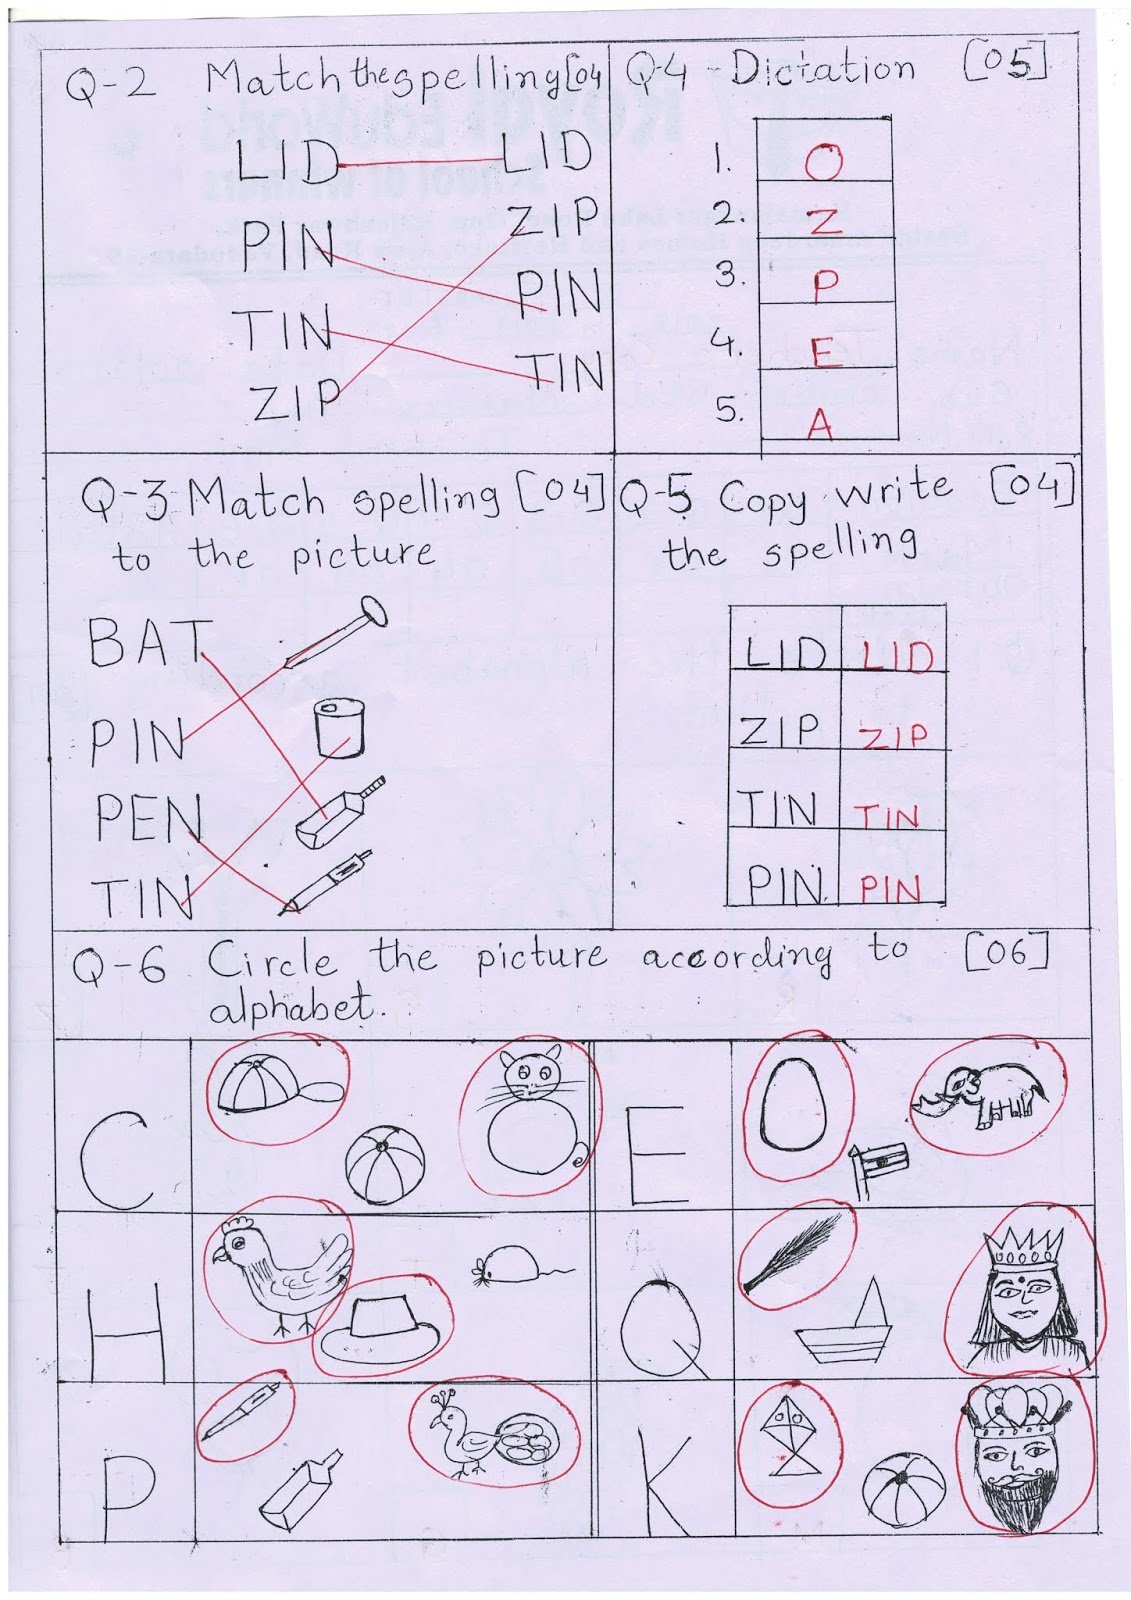 Q-2 Match the spelling [04
LID LID
PIN ZIP
TIN PIN
ZIP TIN
Q-4 - Dictation [05]
1. O
2. Z
3. P
4. E
5. A
Q-3 Match spelling [04]
to the picture
BAT
PIN
PEN
TIN
Q-5 Copy write [04]
the spelling
LID LID
ZIP ZIP
TIN TIN
PIN. PIN
Q-6 Circle the picture according to [06]
alphabet.
C E
H Q
P K